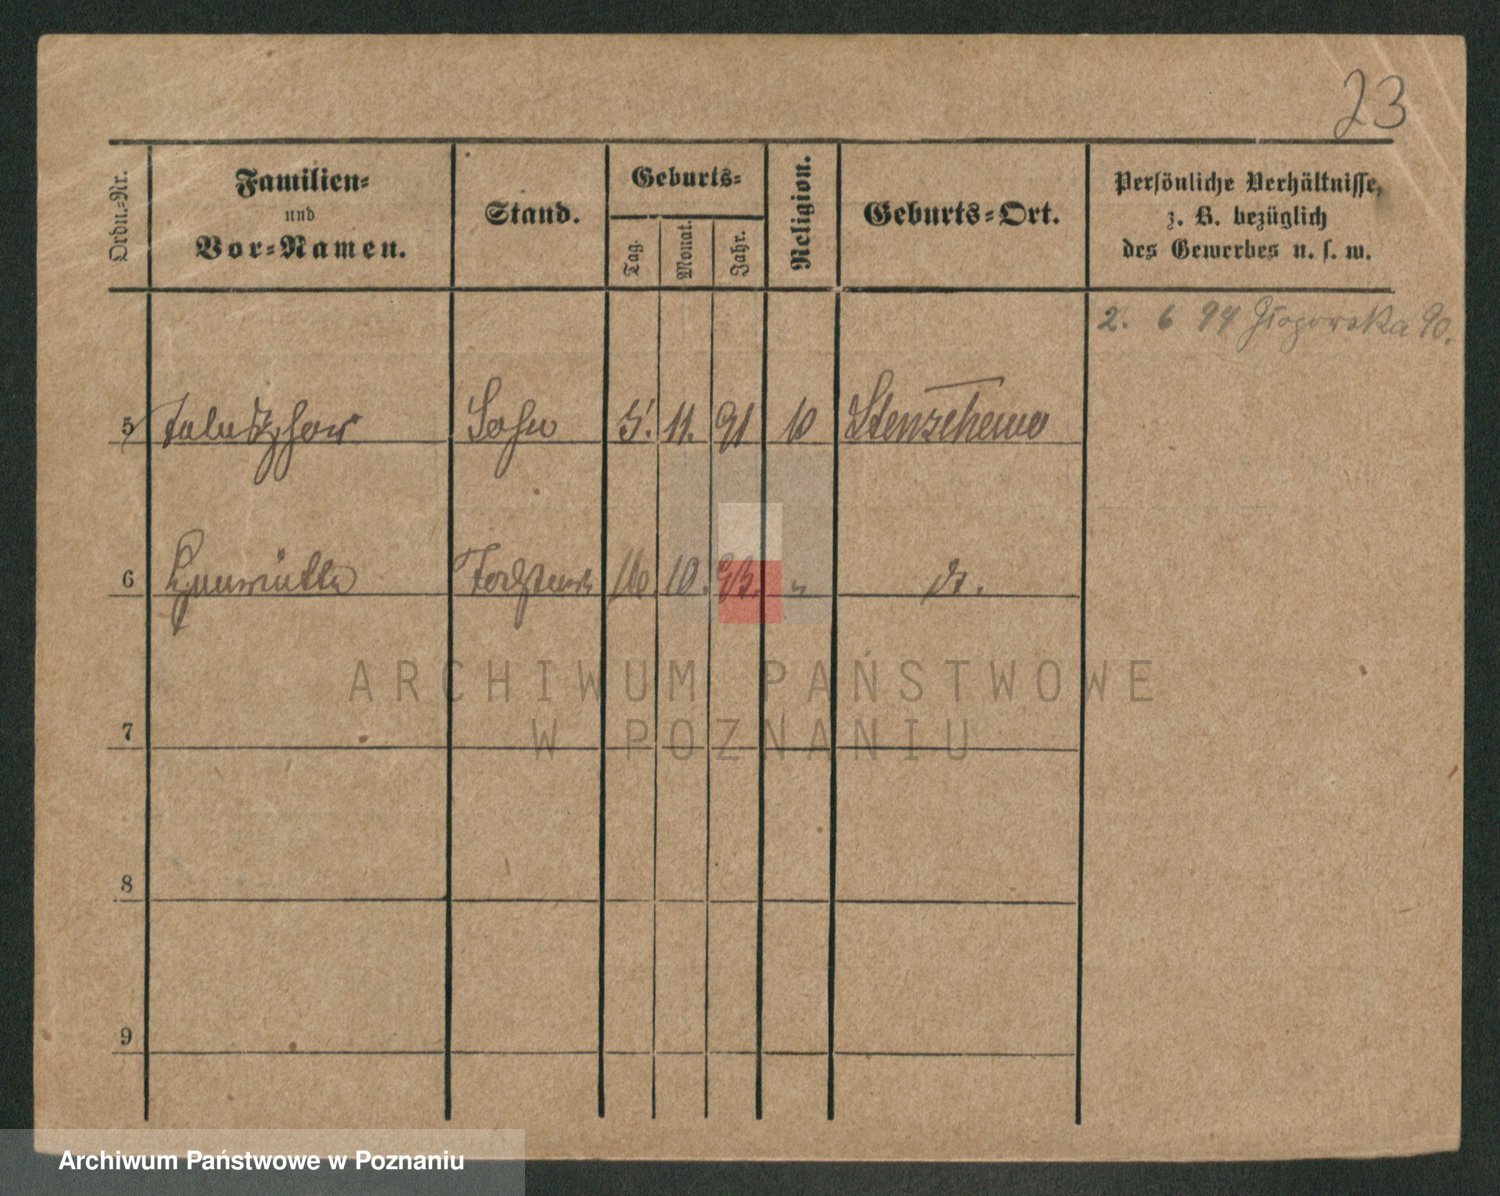 23
Ordn.-Nr.
Familien-
und
Vor-Namen.
Stand.
Geburts-
Tag.
Monat.
Jahr.
Religion.
Geburts-Ort.
Persönliche Verhältnisse,
z. B. bezüglich
des Gewerbes u. s. w.
2. 6 94 Głogowska 90.
5 Sohn 5. 11. 91
6 Tochter 16. 10. 93. "
ARCHIWUM PAŃSTWOWE
W POZNANIU
7
8
9
Archiwum Państwowe w Poznaniu